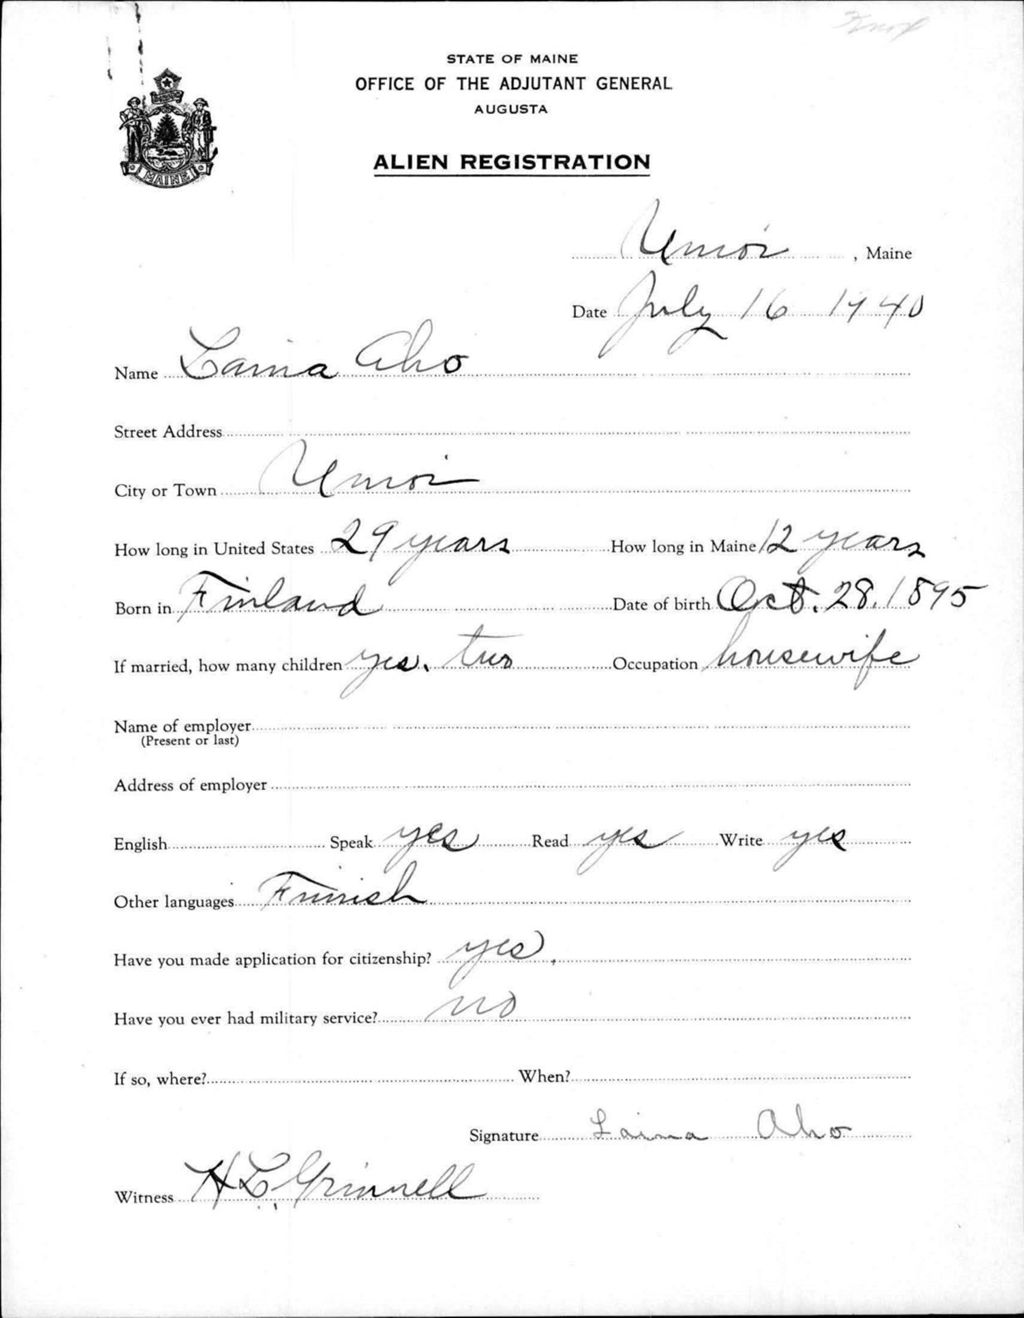 Knox
STATE OF MAINE
OFFICE OF THE ADJUTANT GENERAL
AUGUSTA
ALIEN REGISTRATION
MAINE
Union, Maine
Date July 16 1940
Name Laina Aho
Street Address
City or Town Union
How long in United States 29 years How long in Maine 12 years
Born in Finland Date of birth Oct. 28, 1895
If married, how many children yes, two Occupation housewife
Name of employer
(Present or last)
Address of employer
English Speak yes Read yes Write yes
Other languages Finnish
Have you made application for citizenship? yes.
Have you ever had military service? no
If so, where? When?
Signature Laina Aho
Witness H L Grinnell